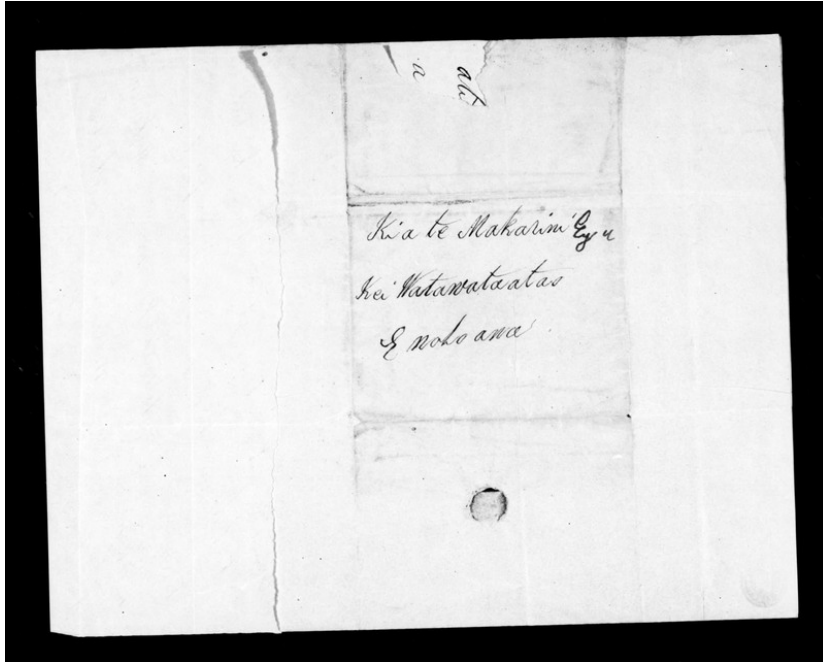 a ali
Kia te Makarini Esqr
Kei Watawataatas
E noho ana